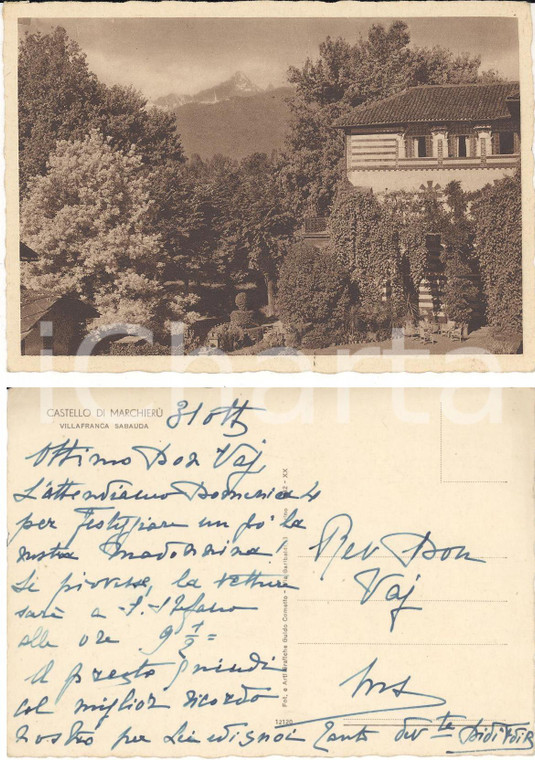 iCharta
CASTELLO DI MARCHIERÙ
VILLAFRANCA SABAUDA
31 ott
Ottimo Don Vaj
L'attendiamo Domenica 4
per festeggiare un pò la
nostra Madonnina!
Se piovesse, la vettura
sarà a S. Stefano
alle ore 9 1/2 =
A presto quindi
col miglior ricordo
nostro per Lei ed ignoi
Rev Don
Vaj
12120
Fot. e Arti Grafiche Guido Cometto
XX